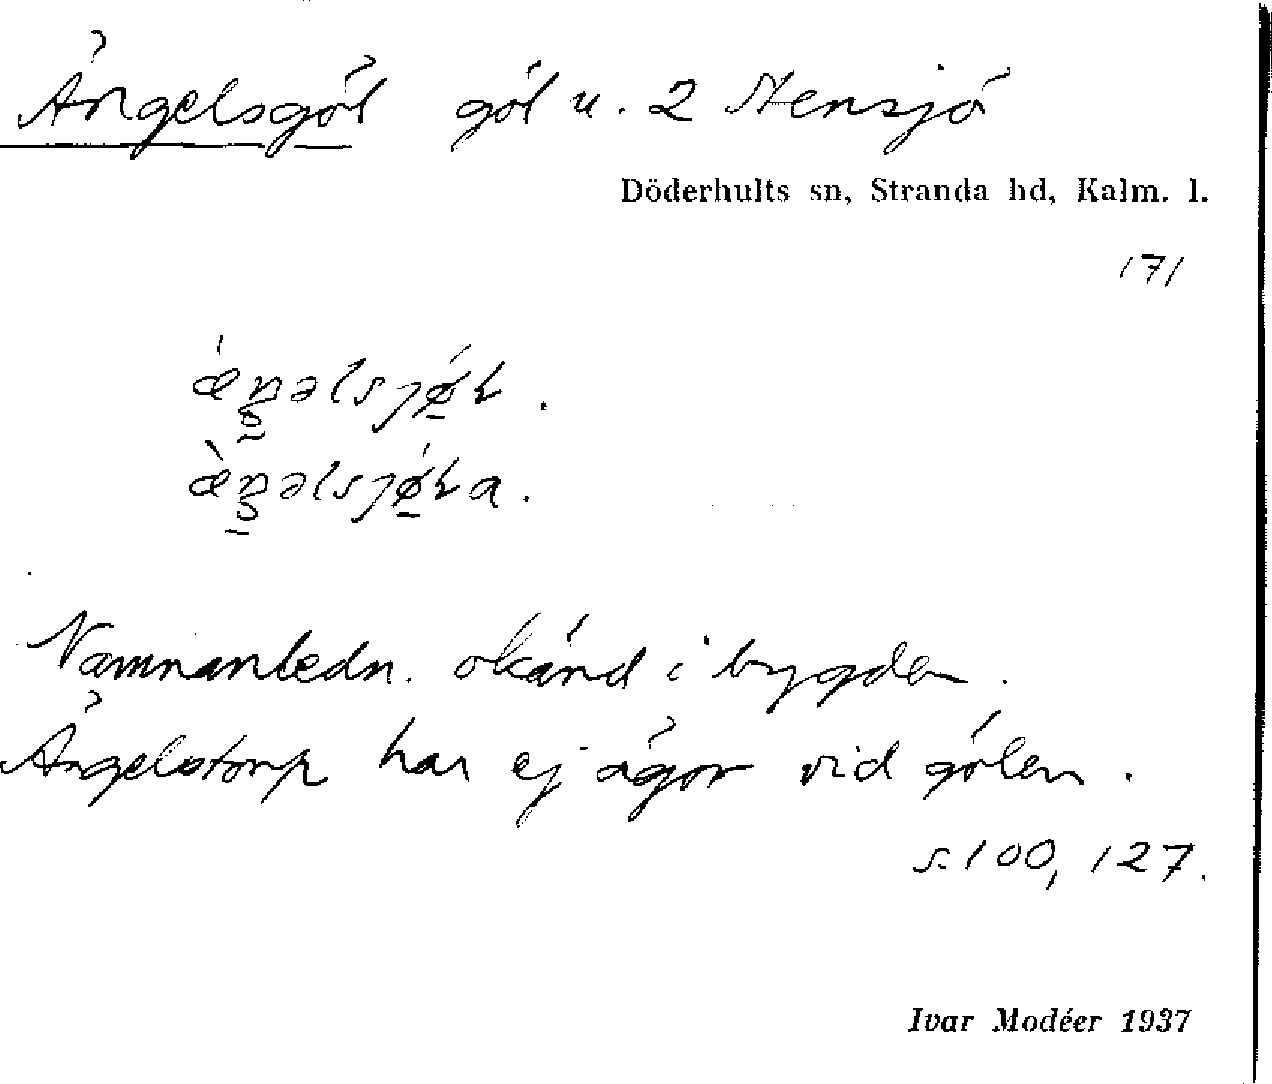 Ängelsgöl göl u. 2 Stensjö
Döderhults sn, Stranda hd, Kalm. l.
171
Namnanledn. okänd i bygden.
Ängelstorp har ej ägor vid gölen.
s. 100, 127.
Ivar Modéer 1937